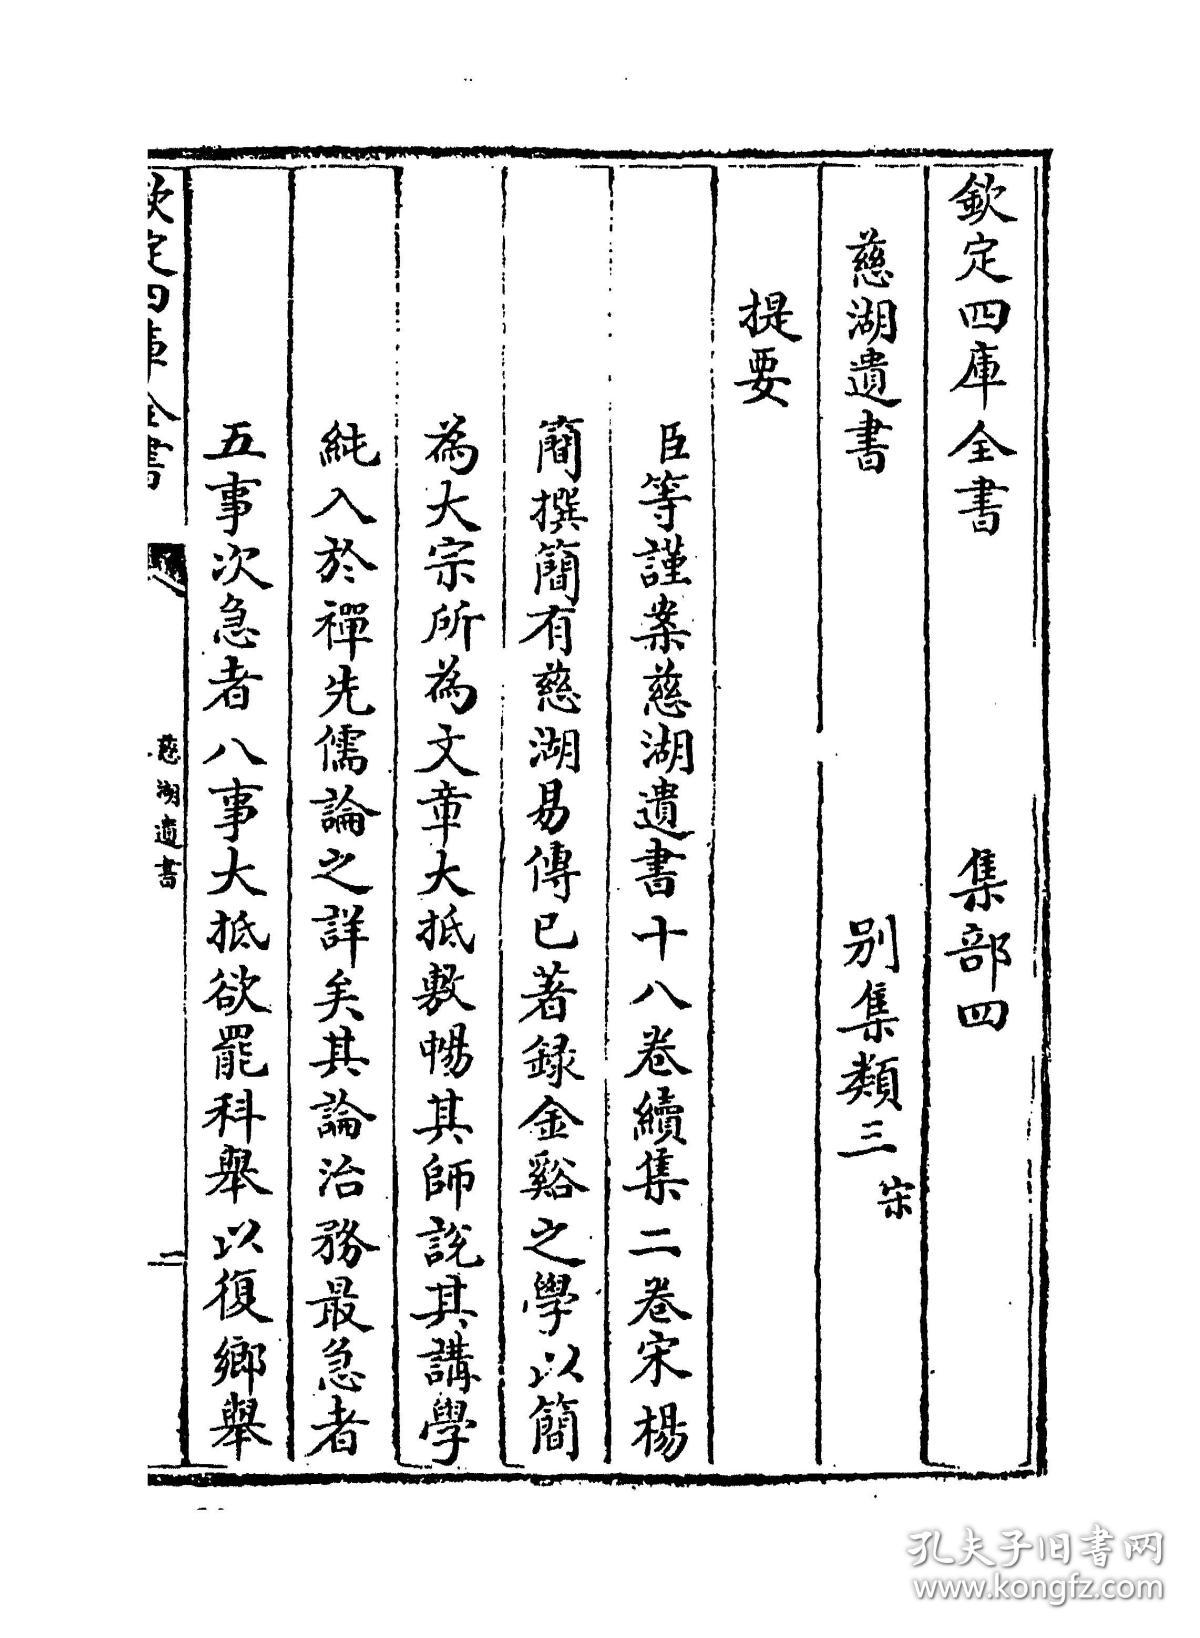 欽定四庫全書 集部四
慈湖遺書 别集類三 宋
提要
臣等謹案慈湖遺書十八卷續集二卷宋楊
簡撰簡有慈湖易傳已著録金谿之學以簡
為大宗所為文章大抵敷暢其師說其講學
純入於禪先儒論之詳矣其論治務最急者
五事次急者八事大抵欲罷科舉以復鄉舉
欽定四庫全書
慈湖遺書
二
孔夫子旧书网
www.kongfz.com